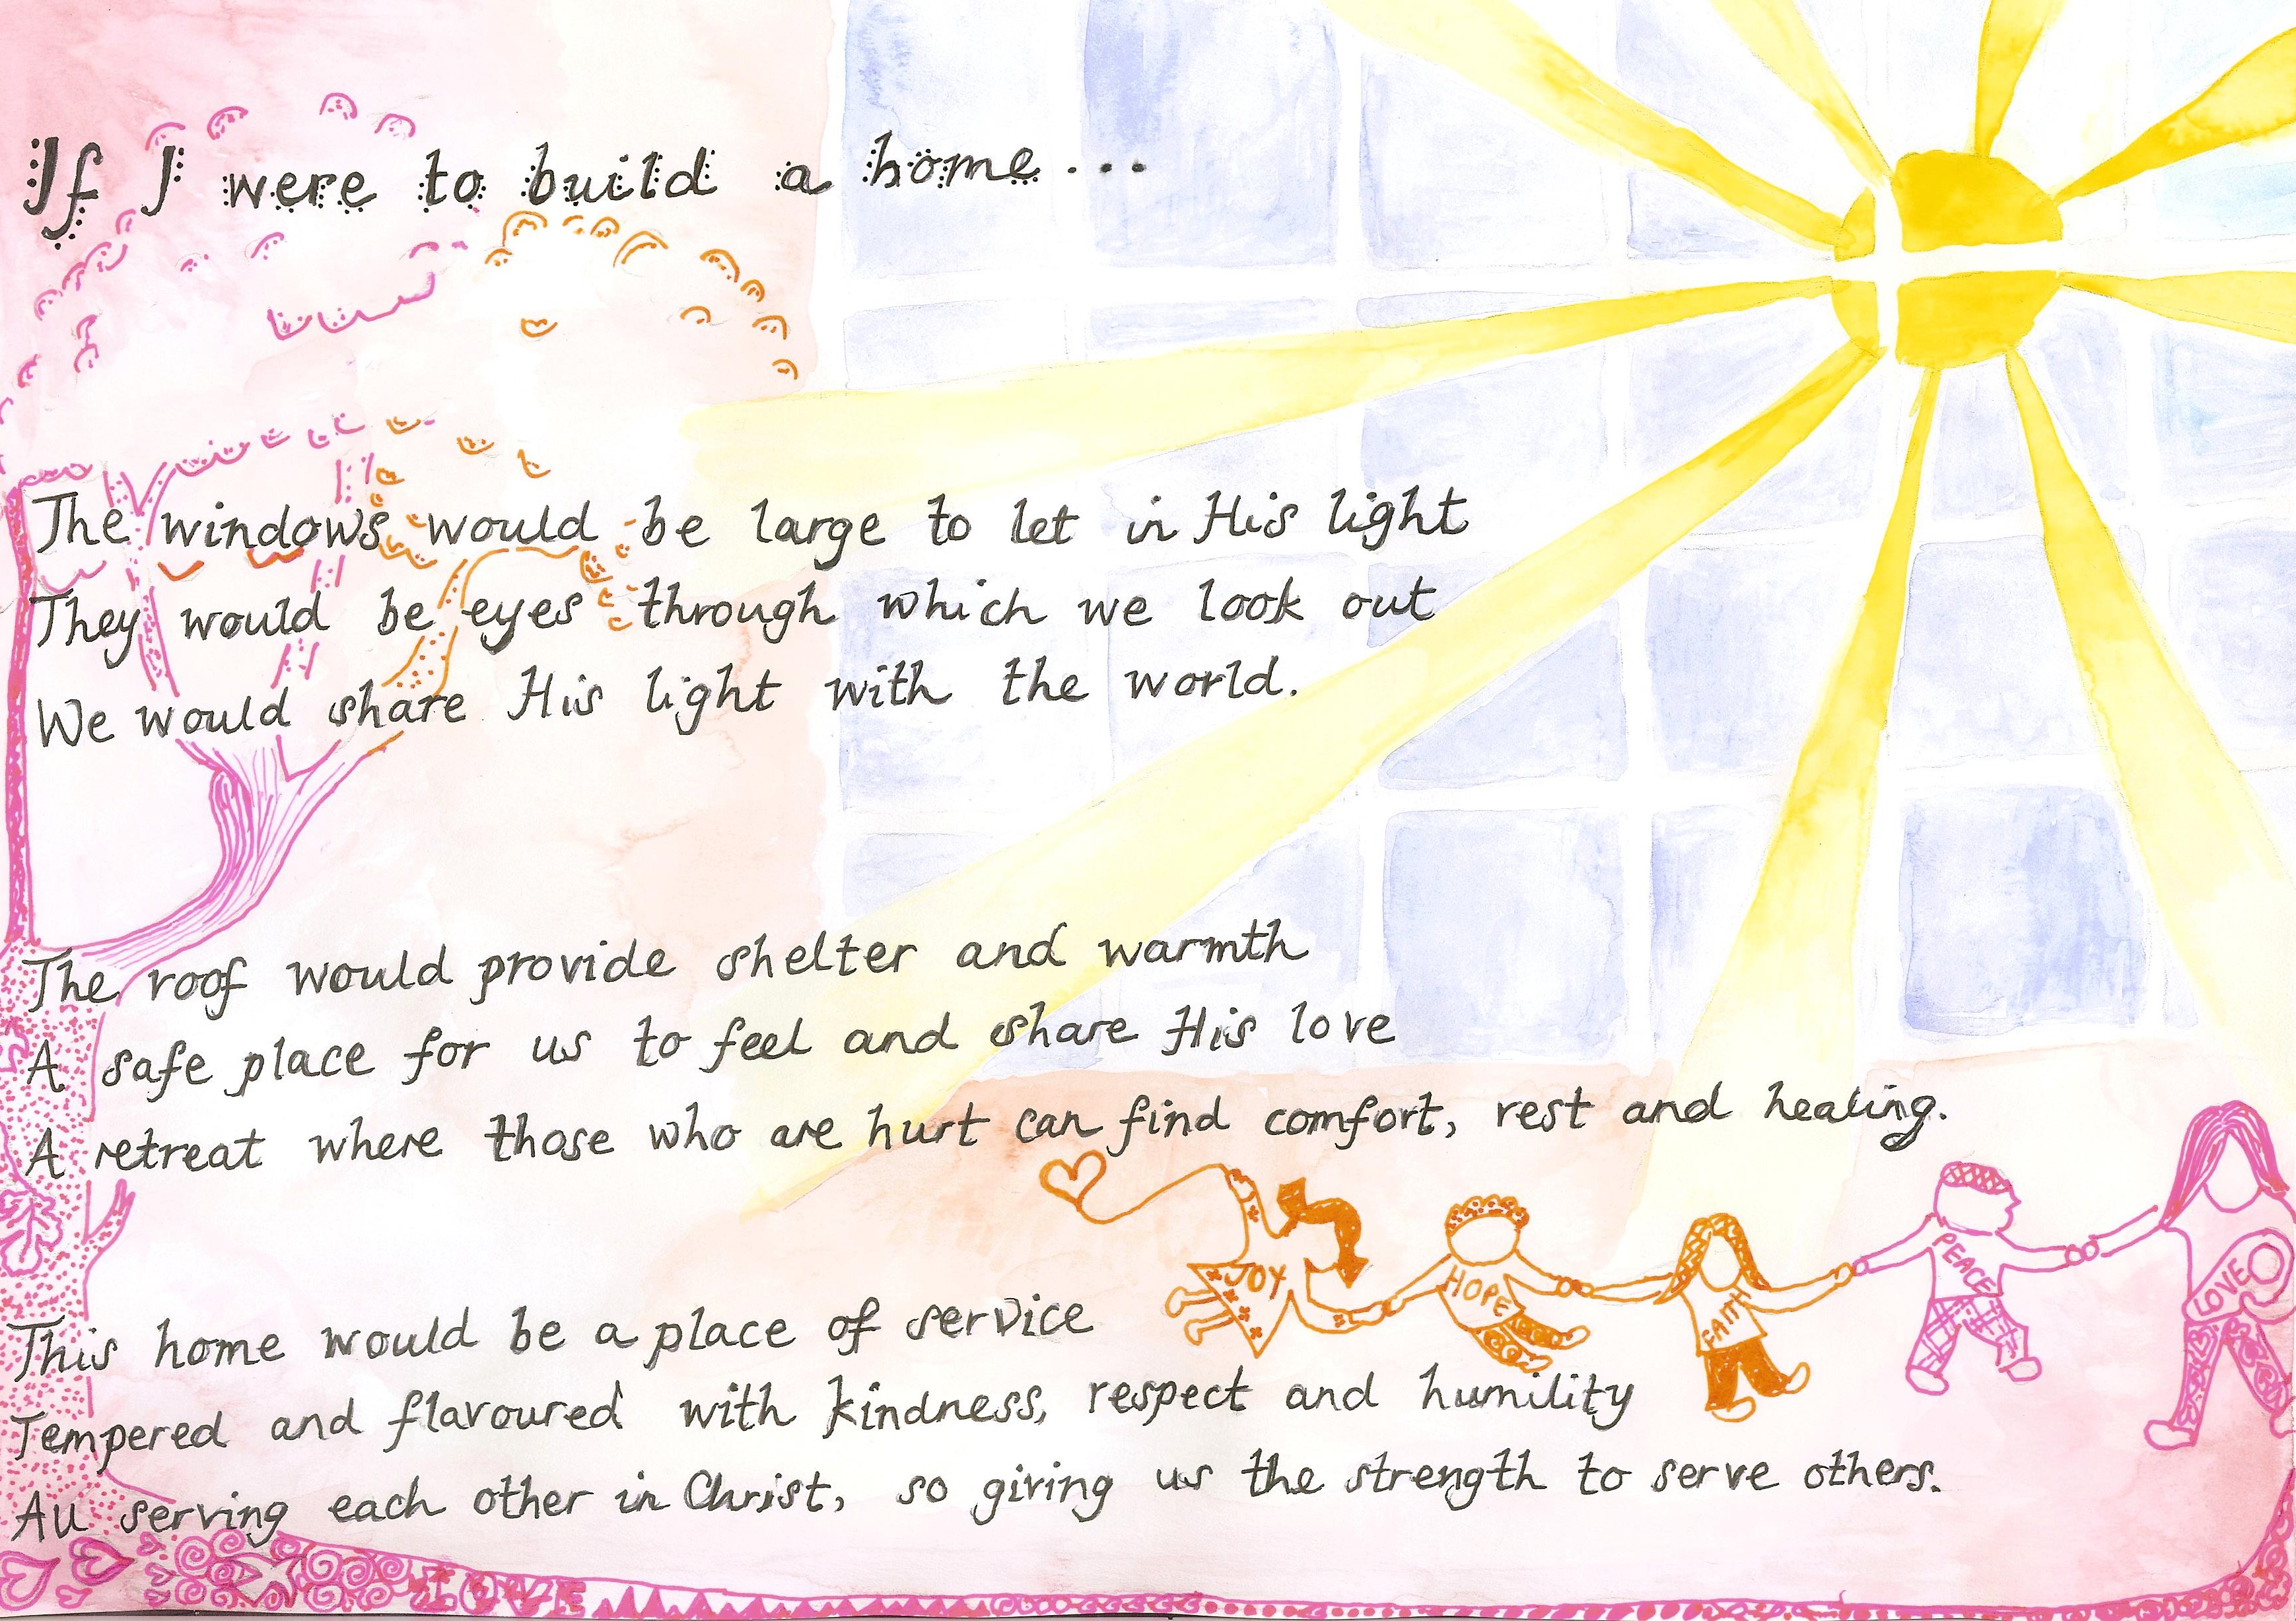 If I were to build a home...
The windows would be large to let in His light
They would be eyes through which we look out
We would share His light with the world.
The roof would provide shelter and warmth
A safe place for us to feel and share His love
A retreat where those who are hurt can find comfort, rest and healing.
This home would be a place of service
Tempered and flavoured with kindness, respect and humility
All serving each other in Christ, so giving us the strength to serve others.
JOY
HOPE
FAITH
PEACE
LOVE
LOVE